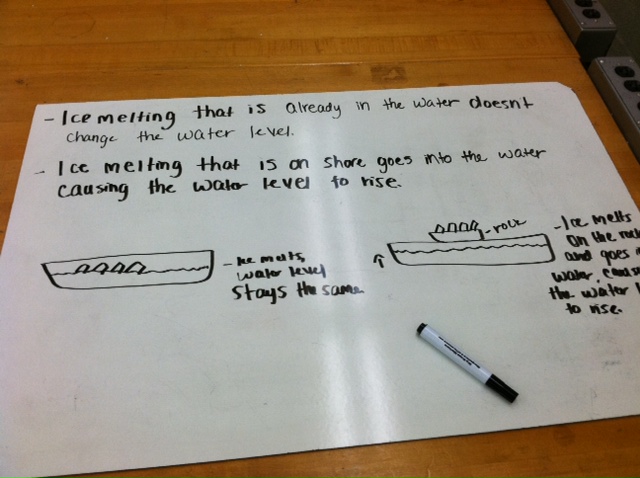 - Ice melting that is already in the water doesn't
change the water level.
- Ice melting that is on shore goes into the water
causing the water level to rise.
- Ice melts,
water level
stays the same
- rock
- Ice melts
on the rock
and goes
water, caus
the water l
to rise.